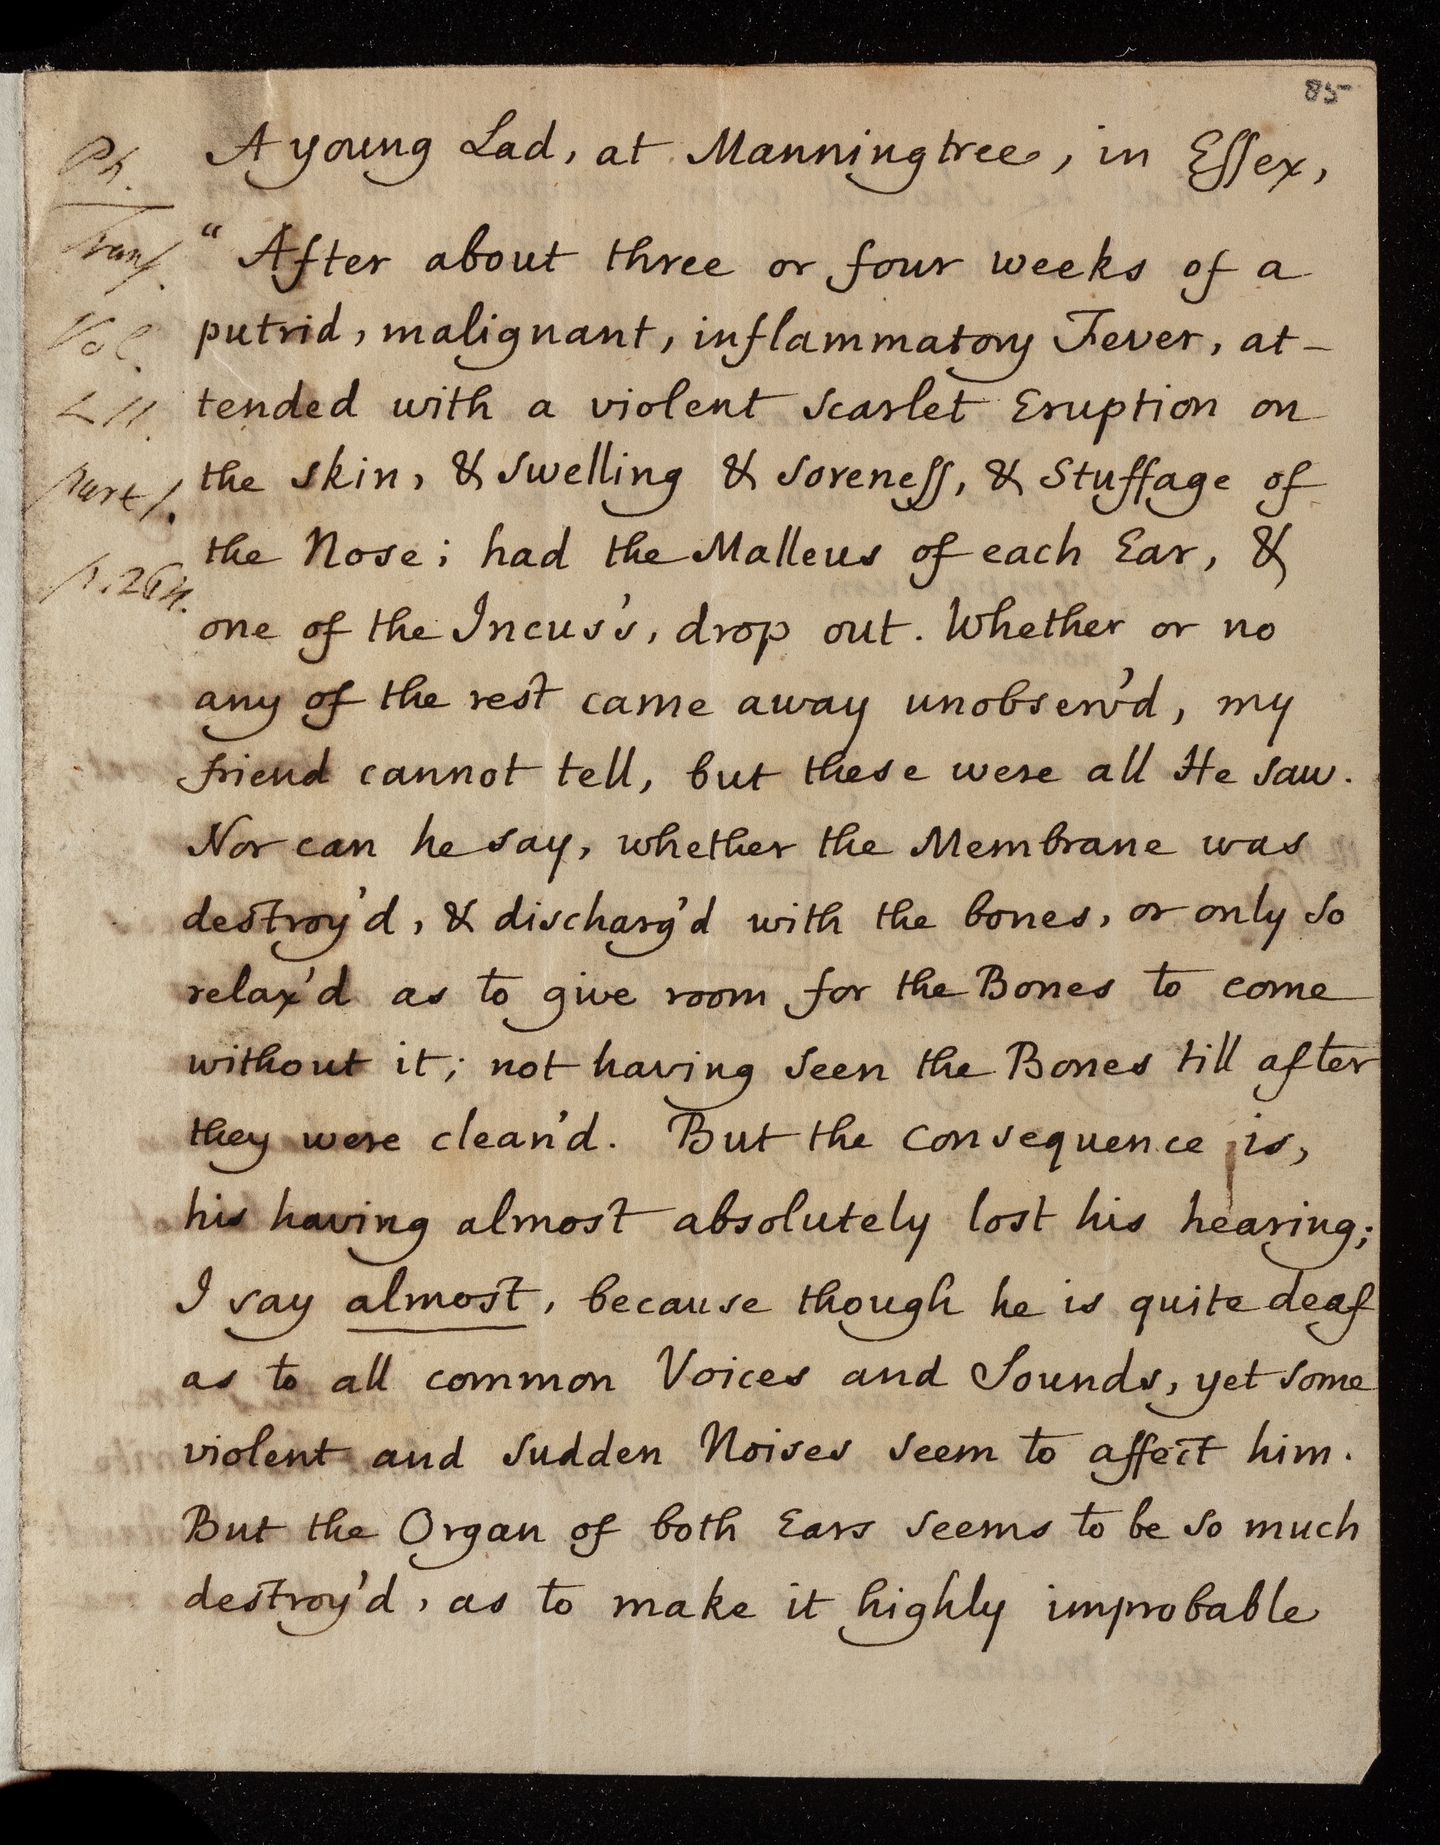 85
Ph.
Trans.
Vol.
LII.
part 1.
p. 264.
A young Lad, at Manningtree, in Essex,
" After about three or four weeks of a
putrid, malignant, inflammatory Fever, at-
tended with a violent scarlet Eruption on
the skin, & swelling & soreness, & Stuffage of
the Nose; had the Malleus of each Ear, &
one of the Incus's, drop out. Whether or no
any of the rest came away unobserv'd, my
friend cannot tell, but these were all He saw.
Nor can he say, whether the Membrane was
destroy'd, & discharg'd with the bones, or only so
relax'd as to give room for the Bones to come
without it; not having seen the Bones till after
they were clean'd. But the consequence is,
his having almost absolutely lost his hearing;
I say almost, because though he is quite deaf
as to all common Voices and Sounds, yet some
violent and sudden Noises seem to affect him.
But the Organ of both Ears seems to be so much
destroy'd, as to make it highly improbable